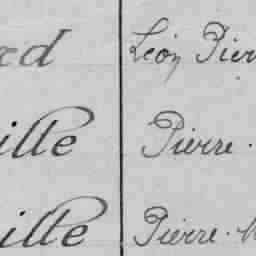 ed Léon Pier
ille Pierre.
ille Pierre. M